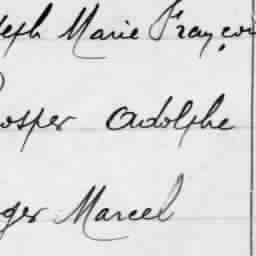 seph Marie Françoi
rosper Adolphe
ger Marcel